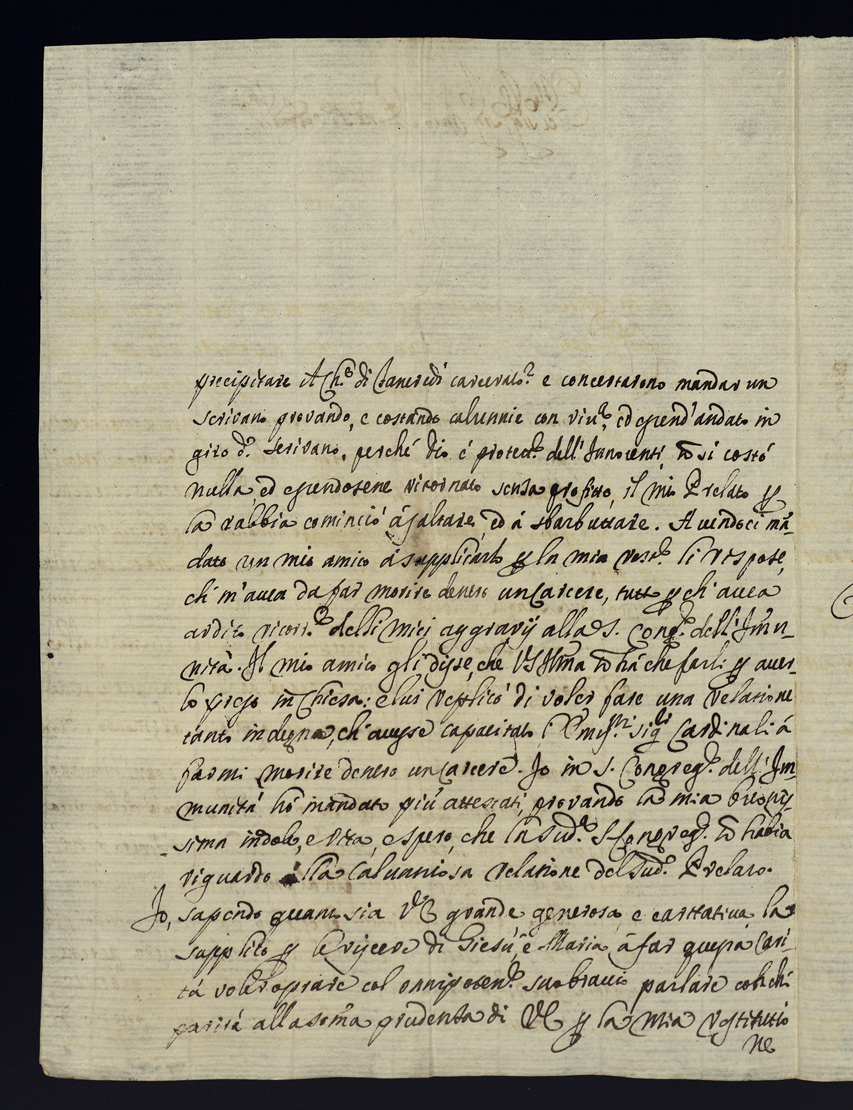 precipitare il Ch.º di Tancredi carcerato. e concertarono mandar un
scrivano provando, e costando calunnie con vin.º, ed essend'andato in
giro d.º scrivano, perché Dio è protett.e dell'Innocenti, nõ si costò
nulla, ed essendosene ritornato senza profitto, il mio Prelato p
la rabbia cominciò à saltare, ed à sbarbuttare. Avendoci mã-
dato un mio amico à supplicarlo p la mia rest.e li rispose,
ch'm'avea da far morire dentro un carcere, tutto p ch'avea
ardito ricorr.e delli miei aggravij alla S. Cong.e dell'Imu-
nità. Il mio amico gli disse, che VS Illma nõ hà che farli p aver-
lo preso in Chiesa: e lui replicò di voler fare una relatione
tanto indegna, ch'avesse capacitato l'Emis.mi sig.ri Cardinali à
farmi morire dentro un carcere. Io in S. Congreg.e dell'Im-
munità hò mandato più attestati, provando la mia buonis-
sima indole, e vita, e spero, che la sud.a S. Congreg.e nõ habia
riguardo alla calunniosa relatione del sud.o Prelato.
Io, sapendo quant sia V.E. grande generosa, e caritativa, la
supplico p le viscere di Giesù, e Maria, à far questa cari-
tà voler oprare col onnipotent.e suo braccio parlare con chi
parirà alla som̃a prudenza di V.E. p la mia restitutio
ne